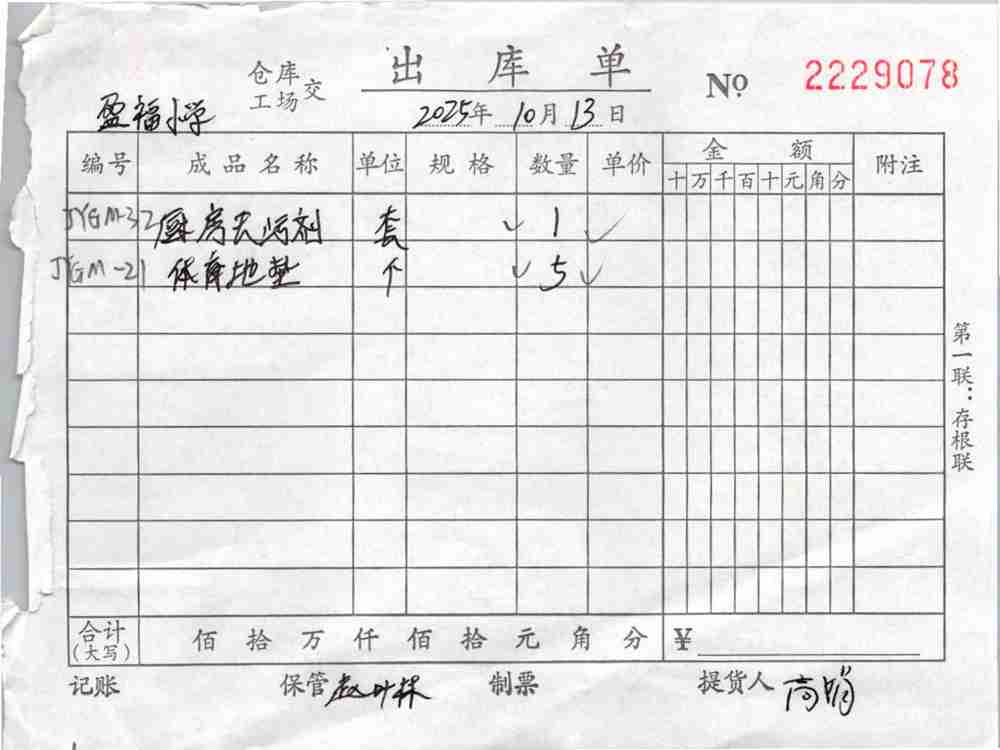 仓库
工场交
出库单
No 2229078
盈福小学
2025年10月13日
编号 成品名称 单位 规格 数量 单价 金额 附注
十万千百十元角分
JYGM-32 厨房去污剂 套 ✓ 1 ✓
JYGM-21 体育地垫 个 ✓ 5 ✓
第一联：存根联
合计(大写) 佰拾万仟佰拾元角分 ¥
记账 保管 赵叶林 制票 提货人 高娟